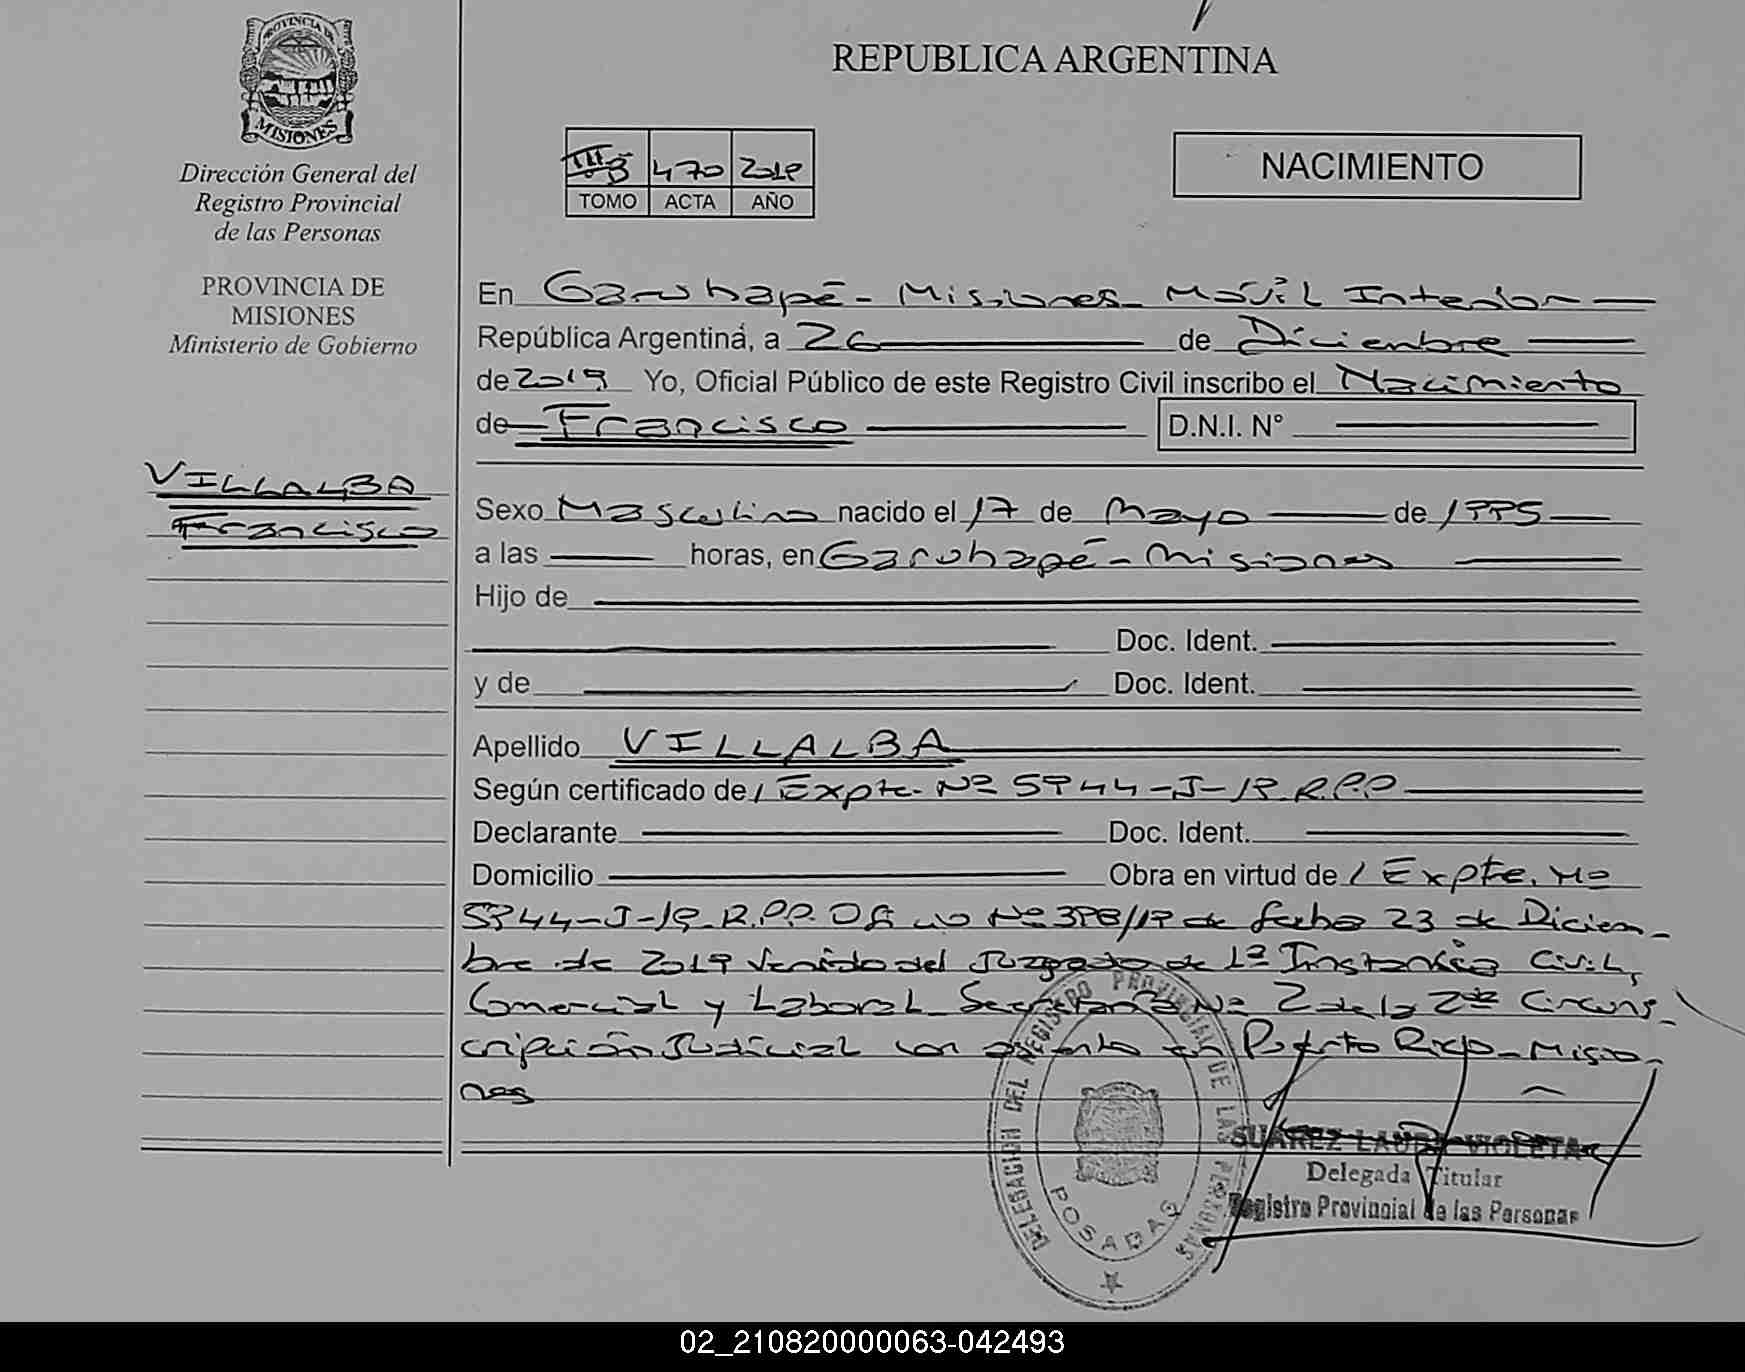 PROVINCIA DE
MISIONES
Dirección General del
Registro Provincial
de las Personas
PROVINCIA DE
MISIONES
Ministerio de Gobierno
VILLALBA
Francisco
REPUBLICA ARGENTINA
III B 470 2019
TOMO ACTA AÑO
NACIMIENTO
En Garuhapé - Misiones - Móvil Interior
República Argentina, a 26 de Diciembre
de 2019 Yo, Oficial Público de este Registro Civil inscribo el Nacimiento
de Francisco D.N.I. N°
Sexo Masculino nacido el 17 de Mayo de 1995
a las horas, en Garuhapé - Misiones
Hijo de
Doc. Ident.
y de Doc. Ident.
Apellido VILLALBA
Según certificado de / Expte. Nº 5944-J-19. R.P.P
Declarante Doc. Ident.
Domicilio Obra en virtud de / Expte. Nº
5944-J-19. R.P.P. Oficio Nº 398/19 de fecha 23 de Diciem-
bre de 2019 venido del Juzgado de 1ª Instancia Civil,
Comercial y Laboral Secretaria Nº 2 de la 2da Circuns-
cripción Judicial con asiento en Puerto Rico - Misio-
nes
DELEGACION DEL REGISTRO PROVINCIAL DE LAS PERSONAS
POSADAS
SUAREZ VIOLETA
Delegada Titular
Registro Provincial de las Personas
02_210820000063-042493